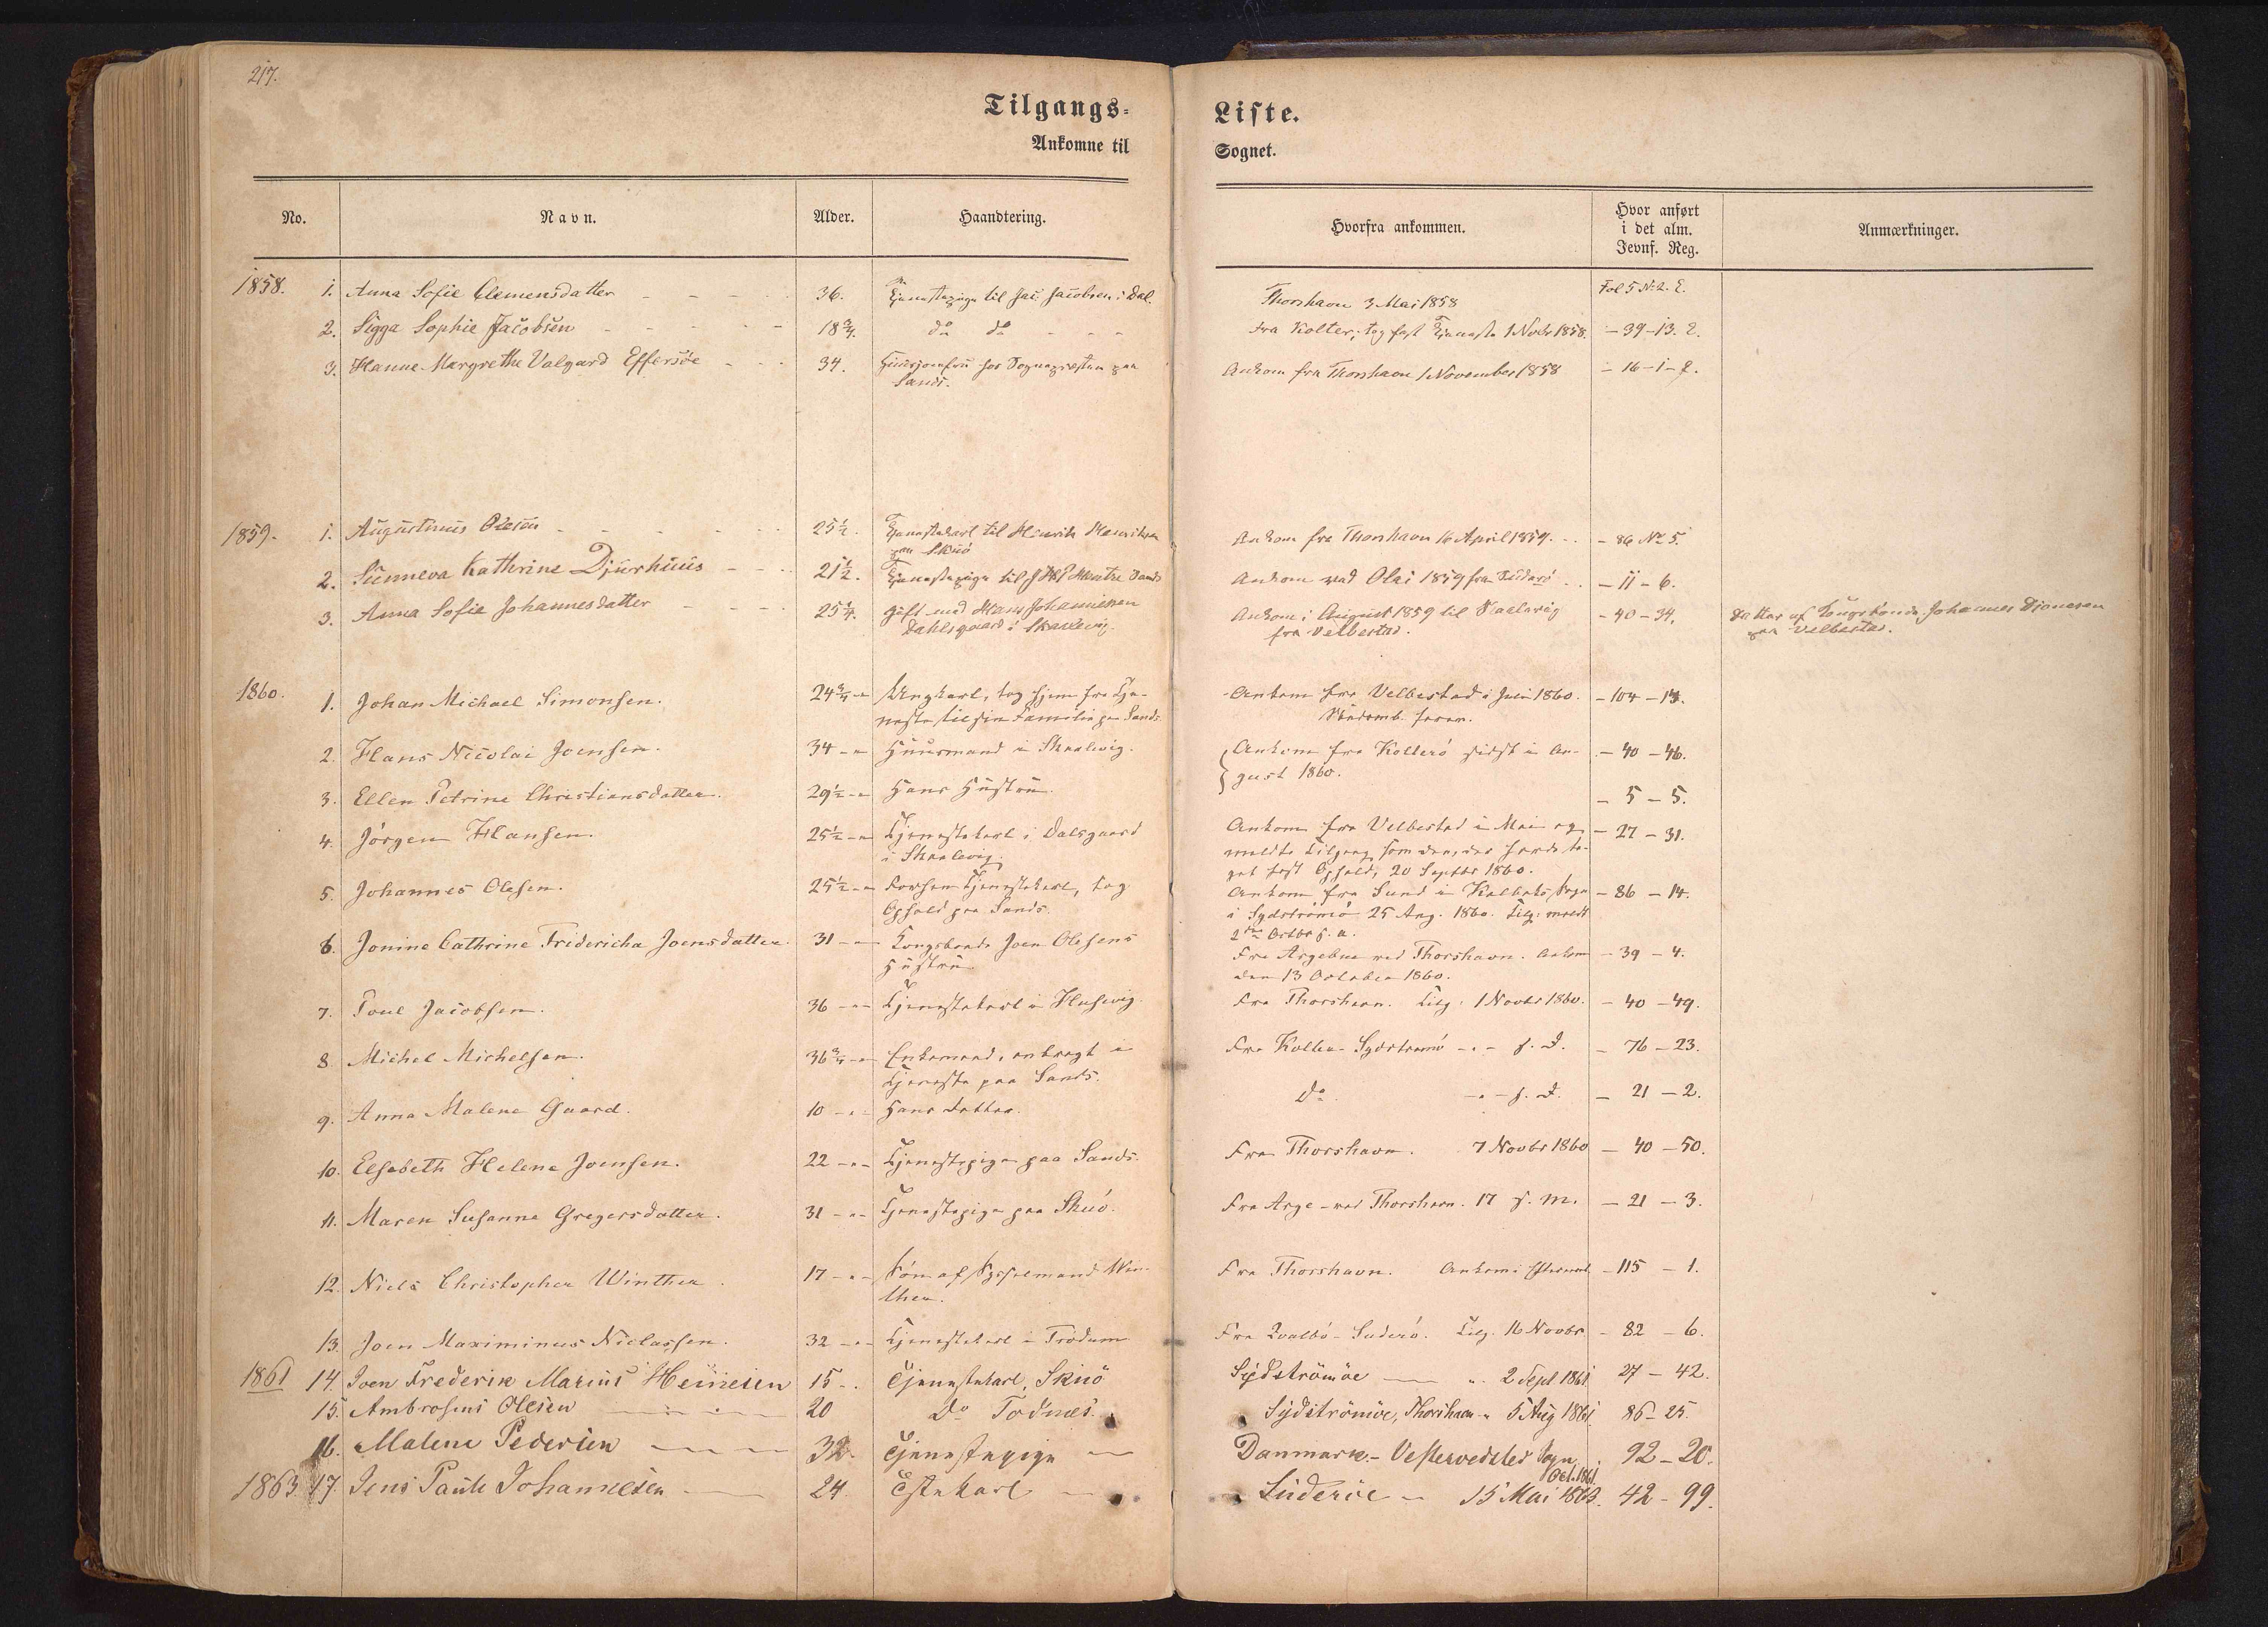 217.
Tilgangs-Liste.
Ankomne til Sognet.
No. Navn. Alder. Haandtering. Hvorfra ankommen. Hvor anført i det alm. Jevnf. Reg. Anmærkninger.
1858. 1. Anna Sofie Clemensdatter 36. Tjenestepige til Jac. Jacobsen i Dal. Thorshavn 3 Mai 1858 Fol 5 No. 2.
2. Sigga Sophie Jacobsen 18 3/4. do do Fra Kolter, tog fast Tjeneste 1 Novbr 1858. - 39 - 13. 2.
3. Hanne Margrethe Valgard Effersöe 34. Huusjomfru hos Sognepræsten paa
Sands.
Ankom fra Thorshavn 1 November 1858 - 16 - 1 -
1859. 1. Augustinus Olesen 25 1/2. Tjenestekarl til Henrik Henriksen
paa Skuö
Ankom fra Thorshavn 16 April 1859. - 86 No 5.
2. Sunneva Kathrine Djurhuus 21 1/2. Tjenestepige til Sands
Ankom ved Olai 1859 fra Suderö - 11 - 6.
3. Anna Sofie Johannesdatter 25 1/4. gift med Hans Johannesen
Dahlsgaard i Skaalevig.
Ankom i August 1859 til Skaalevig
fra Velbestad.
- 40 - 34.
Datter af Kongsbonde Johannes Djonesen
paa Velbestad.
1860. 1. Johan Michael Simonsen. 24 3/4 Ungkarl, tog hjem fra Tje-
neste til sin Familie paa Sands.
Ankom fra Velbestad i Juni 1860.
- 104 - 13.
2. Hans Nicolai Joensen. 34 Huusmand i Skaalevig.
Ankom fra Kolterö sidst i Au-
gust 1860.
- 40 - 46.
3. Ellen Petrine Christiansdatter. 29 1/2 Hans Hustru. - 5 - 5.
4. Jörgen Hansen. 25 1/2 Tjenestekarl i Dalsgaard
i Skaalevig.
Ankom fra Velbestad i Mai og
meldte Tilgang som den, der havde ta-
get fast Ophold, 20 Septbr 1860.
- 27 - 31.
5. Johannes Olesen. 25 1/2 Forhen Tjenestekarl, tog
Ophold paa Sands.
Ankom fra Sund i Kalbaks Sogn
i Sydströmö 25 Aug. 1860. Tilg. meldt
2den Octbr s. a.
- 86 - 14.
6. Jonine Cathrine Fridericha Joensdatter. 31 Kongsbonde Joen Olesens
Hustru
Fra Argebue ved Thorshavn. Ankom
den 13 October 1860.
- 39 - 4.
7. Poul Jacobsen. 36 Tjenestekarl i Husevig. Fra Thorshavn. Tilg. 1 Novbr 1860. - 40 - 49.
8. Michel Michelsen. 36 3/4 Enkemand, antragt i
Tjeneste paa Sands.
Fra Kolter - Sydströmö - s. D. - 76 - 23.
9. Anna Malene Gaard. 10 Hans Datter. do. s. D. - 21 - 2.
10. Elsebeth Helene Joensen. 22 Tjenestepige paa Sands. Fra Thorshavn. 7 Novbr 1860 - 40 - 50.
11. Maren Susanne Gregersdatter. 31 Tjenestepige paa Skuö. Fra Arge - ved Thorshavn. 17 s. M. - 21 - 3.
12. Niels Christopher Winther. 17 Sön af Sysselmand Win-
ther.
Fra Thorshavn. Ankom i - 115 - 1.
13. Joen Maximinus Niclassen. 32 Tjenestekarl i Trödum Fra Qvalbö - Suderö. Tilg. 16 Novbr - 82 - 6.
1861 14. Joen Frederik Marius Heinesen 15 Tjenestekarl, Skuö Sydströmöe 2 Sept 1861 27 - 42.
15. Ambrosius Olesen 20 Do Todnes. Sydströmöe, Thorshavn 5 Aug 1861 86 - 25.
16. Malene Pedersen 32. Tjenestepige Danmark - Vestervedsted Sogn
Oct. 1861.
92 - 20.
1863. 17. Jens Pauli Johannesen 24. Tjenstekarl Suderöe 15 Mai 1863. 42 - 99.